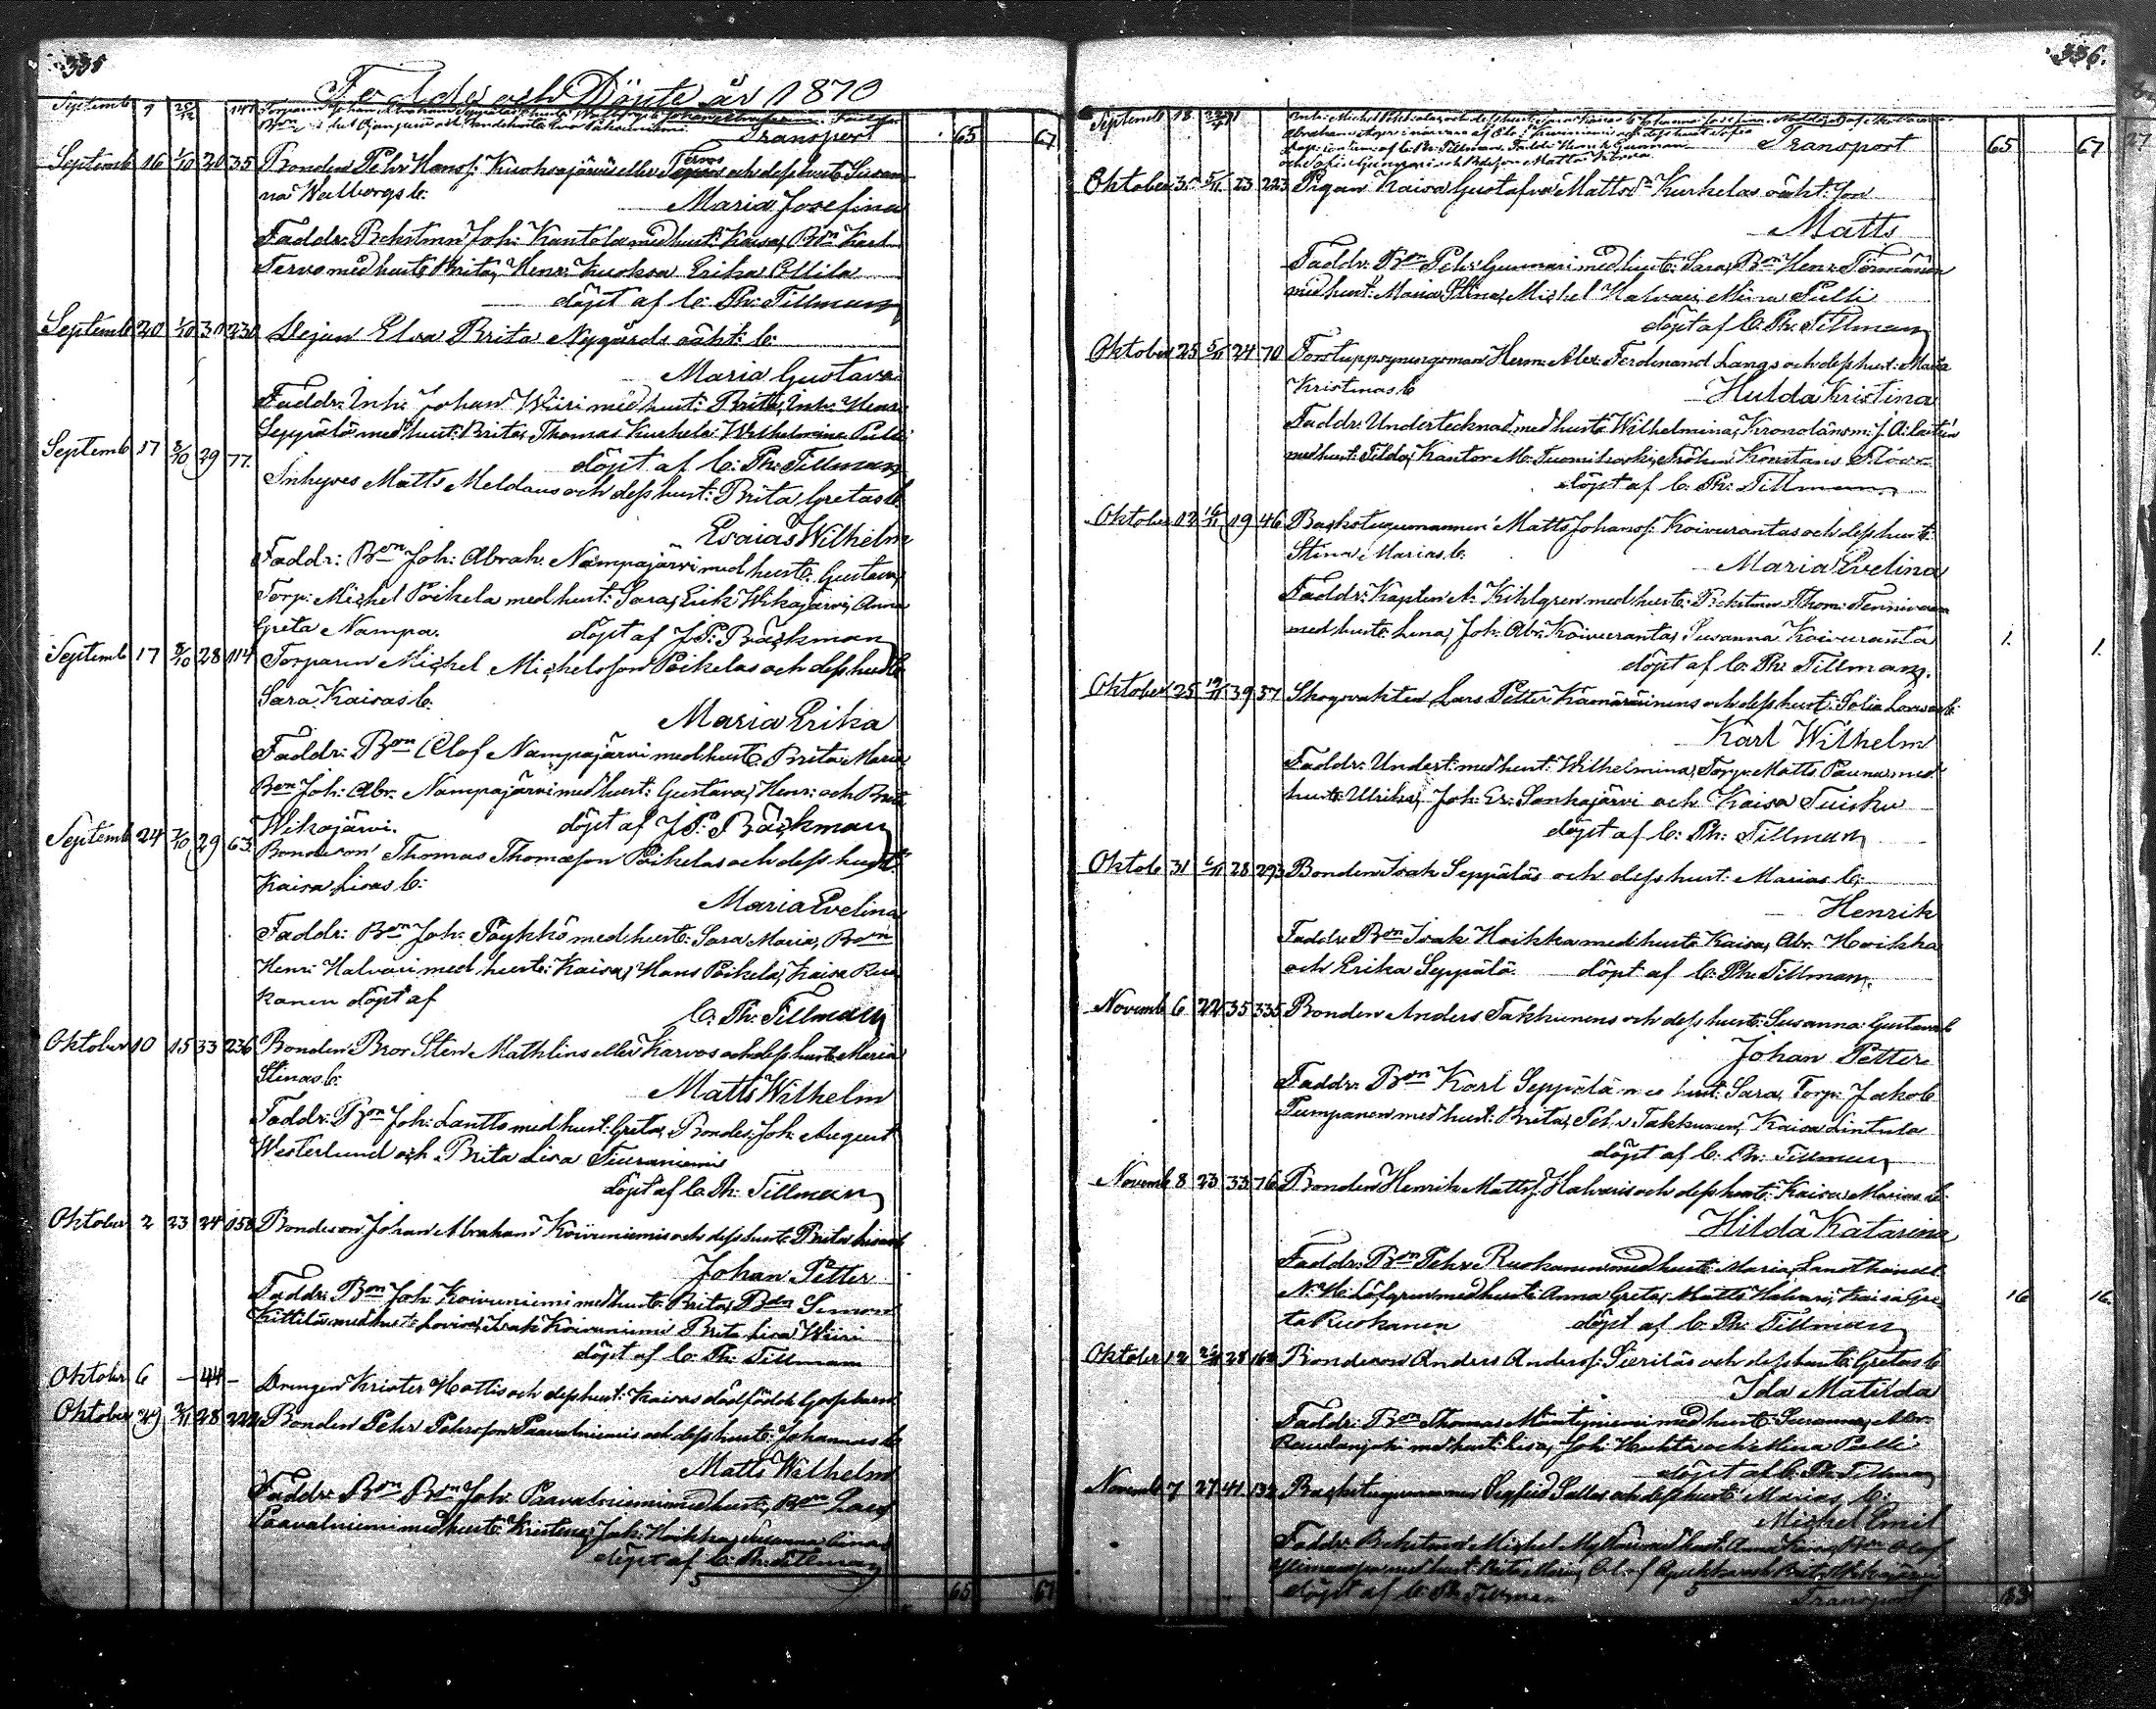 335
Födde och Döpte år 1870
Septemb 9 147 Torparen
Transport 65 67
Septemb 16 1/10 20 35 Bonden Pehr Hansf: Kuoksajärvis eller Tervos och dess hust: Susan
na Walborgs b:
Maria Josefina
Faddr: Bckstmn Joh: Kantola med hust: Kaisa, Bon Karl
Tervo med hust: Brita, Henr: Kuoksa Erika Ollila
döpt af C: Ph: Tillman
Septemb 20 1/10 31 230 Pigan Elsa Brita Nygårds oäkt: b:
Maria Gustava
Faddr: Inh: Johan Wiiri med hust: Brita, Inh: Henr:
Seppälä med hust: Brita, Thomas Kurkela Wilhelmina Pulli
döpt af C: Ph: Tillman
Septemb 17 8/10 29 77. Inhyses Matts Meldaus och dess hust: Brita Gretas b.
Esaias Wilhelm
Faddr: Bon Joh: Abrah: Nampajärvi med hust: Gustava,
Torp: Michel Poikela med hust: Sara, Erik Wikajärvi, Anna
Greta Nampa. döpt af J. P: Bäckman
Septemb 17 8/10 28 114 Torparen Michel Michelsson Poikelas och dess hust:
Sara Kaisas b:
Maria Erika
Faddr: Bon Olof Nampajärvi med hust: Brita Maria,
Bon Joh: Abr: Nampajärvi med hust: Gustava, Henr: och Brita
Wikajärvi. döpt af J. P: Bäckman
Septemb 24 7/10 29 63. Bondeson Thomas Thomasson Poikelas och dess hust:
Kaisa Lisas b:
Maria Evelina
Faddr: Bon Joh: Pöykkö med hust: Sara Maria, Bon
Henr: Halvari med hust: Kaisa, Hans Poikela, Kaisa Ruo
kanen döpt af
C. Ph: Tillman
Oktober 10 15 33 236 Bonden Bror Sten Mathlins eller Karvos och dess hust: Maria
Stinas b:
Matts Wilhelm
Faddr: Bon Joh: Lantto med hust: Greta, Bondes: Joh: August
Westerlund och Brita Lisa Tiuraniemi
döpt af C. Ph: Tillman
Oktober 2 23 24 158 Bondeson Johan Abraham Koivuniemis och dess hust: Brita Lisas b
Johan Petter
Faddr: Bon Joh: Koivuniemi med hust: Brita, Bon Simon
Kittilä med hust: Lovisa, Isak Koivuniemi Brita Lisa Wiiri
döpt af C. Ph: Tillman
Oktober 6 — 44 — Drengen Krister Hottis och dess hust: Kaisas dödfödde Gossbarn
Oktober 29 28 222 Bonden Pehr Pehrsson Paavalniemis och dess hust: Johannas b
Matts Wilhelm
Faddr: Bon Bon Joh: Paavalniemi med hust:, Bon Lars
Paavalniemi med hust: Kristina, Joh: Hoikka,
döpt af C. Ph: Tillman
5
65 67
336.
Septemb 18
Transport 65 67
Oktober 31 5/11 23 223 Pigan Kaisa Gustafva Mattsdr Kurkelas oäkt: son
Matts
Faddr: Bon Pehr Gunnari med hust: Sara, Bon Henr: Törmänen
med hust: Maria Stina, Michel Halvari, Mina Pulli
döpt af C. Ph: Tillman
Oktober 25 5/11 24 70 Forstuppsyningsman Herm: Alex: Ferdinand Langs och dess hust: Maria
Kristinas b
Hulda Kristina
Faddr: Undertecknad med hust: Wilhelmina, Kronolänsm: J. A: Lasten
med hust: Tilda, Kantor M: Tuomikoski, Fröken Konstans
döpt af C. Ph: Tillman
Oktober 12 16/11 19 46 Backstugumannen Matts Johansf: Koivurantas och dess hust:
Stina Marias b.
Maria Evelina
Faddr: Kapten A: Kihlgren med hust: Bckstmn Thom: Tennivaara
med hust: Lena, Joh: Abr: Koivuranta, Susanna Koivuranta
döpt af C. Ph: Tillman.
1. 1.
Oktober 25 19/11 39 57 Skogsvakten Lars Petter Kämäräinens och dess hust: Sofia Lovisas b:
Karl Wilhelm
Faddr: Undert: med hust: Wilhelmina, Torp: Matts Pauna med
hust: Ulrika, Joh: Er: Sonkajärvi och Kaisa Tuisku
döpt af C: Ph: Tillman
Oktobr 31 6/11 28 293 Bonden Isak Seppäläs och dess hust: Marias b:
Henrik
Faddr: Bon Isak Hoikka med hust: Kaisa, Abr: Hoikka
och Erika Seppälä döpt af C. Ph: Tillman.
Novemb 6 22 35 335 Bonden Anders Takkunens och dess hust: Susanna Gustavas b
Johan Petter
Faddr: Bon Karl Seppälä med hust: Sara, Torp: Jakob
Pumpanen med hust: Brita, Pehr Takkunen, Kaisa Lintula
döpt af C. Ph: Tillman
Novemb 8 23 33 76 Bonden Henrik Mattsf: Halvaris och dess hust: Kaisa Marias b.
Hilda Katarina
Faddr: Bon Pehr Ruokanen med hust: Maria, Landthandl:
N: H: Löfgren med hust: Anna Greta, Matts Halvari, Kaisa Gre
ta Ruokanen döpt af C. Ph: Tillman
16 16.
Oktober 12 28 162 Bondeson Anders Andersf: Sieriläs och dess hust: Gretas b
Ida Matilda
Faddr: Bon Thomas Mäntyniemi med hust: Susanna, Alex:
Raudanjoki med hust: Lisa, Joh: Huhta och Mina Pulli
döpt af C. Ph: Tillman
Novemb 7 27 41 132 Backstugumannen Sigfrid Sallas och dess hust: Marias b:
Michel Emil
Faddr: Bckstmn Michel med hust: Anna Kaisa, Bon Olof
med hust: Brita Maria, Olof och Brita
döpt af C. Ph: Tillman 5 Transport